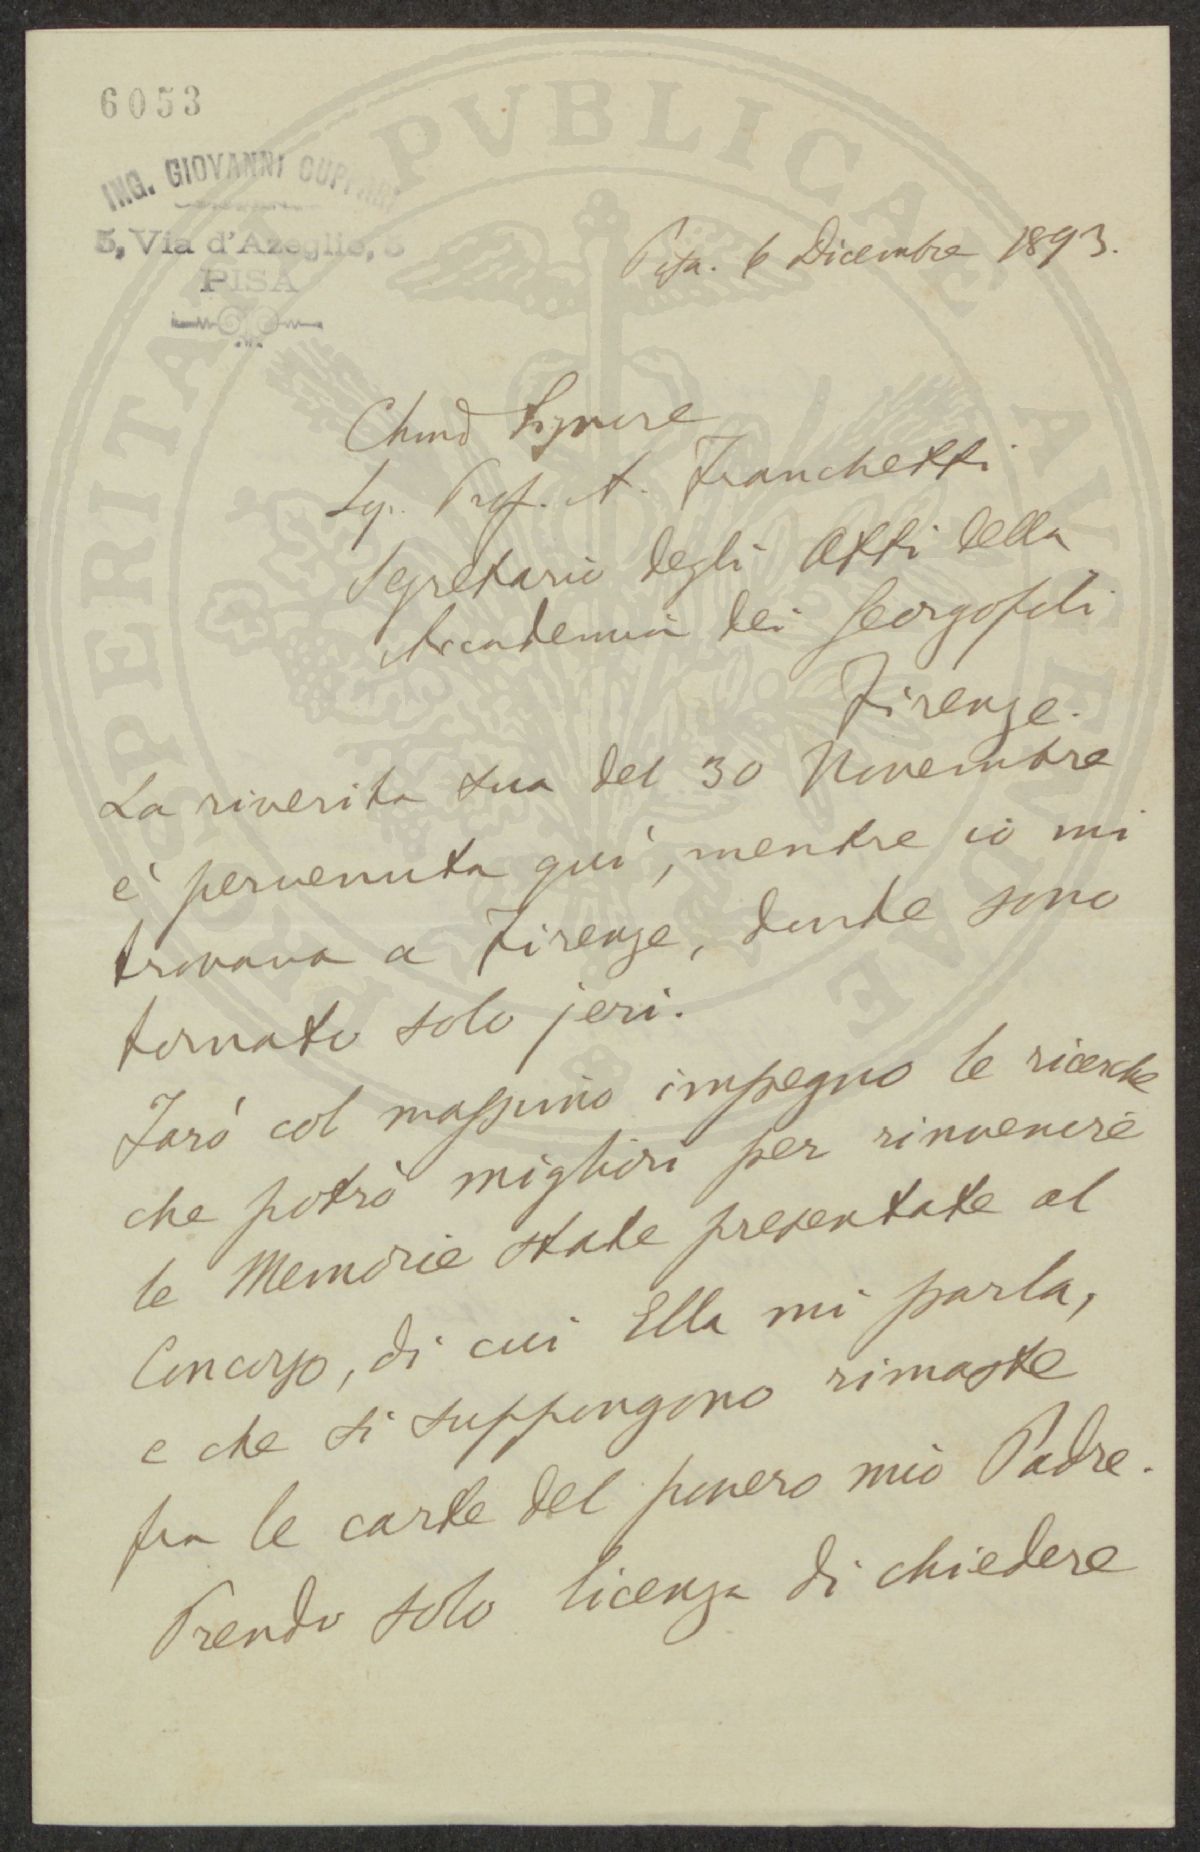 6053
ING. GIOVANNI CUPPARI
5, Via d'Azeglio, 5
PISA
Pisa. 6 Dicembre 1893.
Chmo Signore
Sig. Prof. A. Franchetti
Segretario degli Atti della
Accademia dei Georgofili
Firenze.
La riverita sua del 30 Novembre
è pervenuta quì, mentre io mi
trovava a Firenze, donde sono
tornato solo jeri.
Farò col massimo impegno le ricerche
che potrò migliori per rinvenire
le Memorie state presentate al
Concorso, di cui Ella mi parla,
e che si suppongono rimaste
fra le carte del povero mio Padre.
Prendo solo licenza di chiedere
PROSPERITATI PUBLICAE AUGENDAE